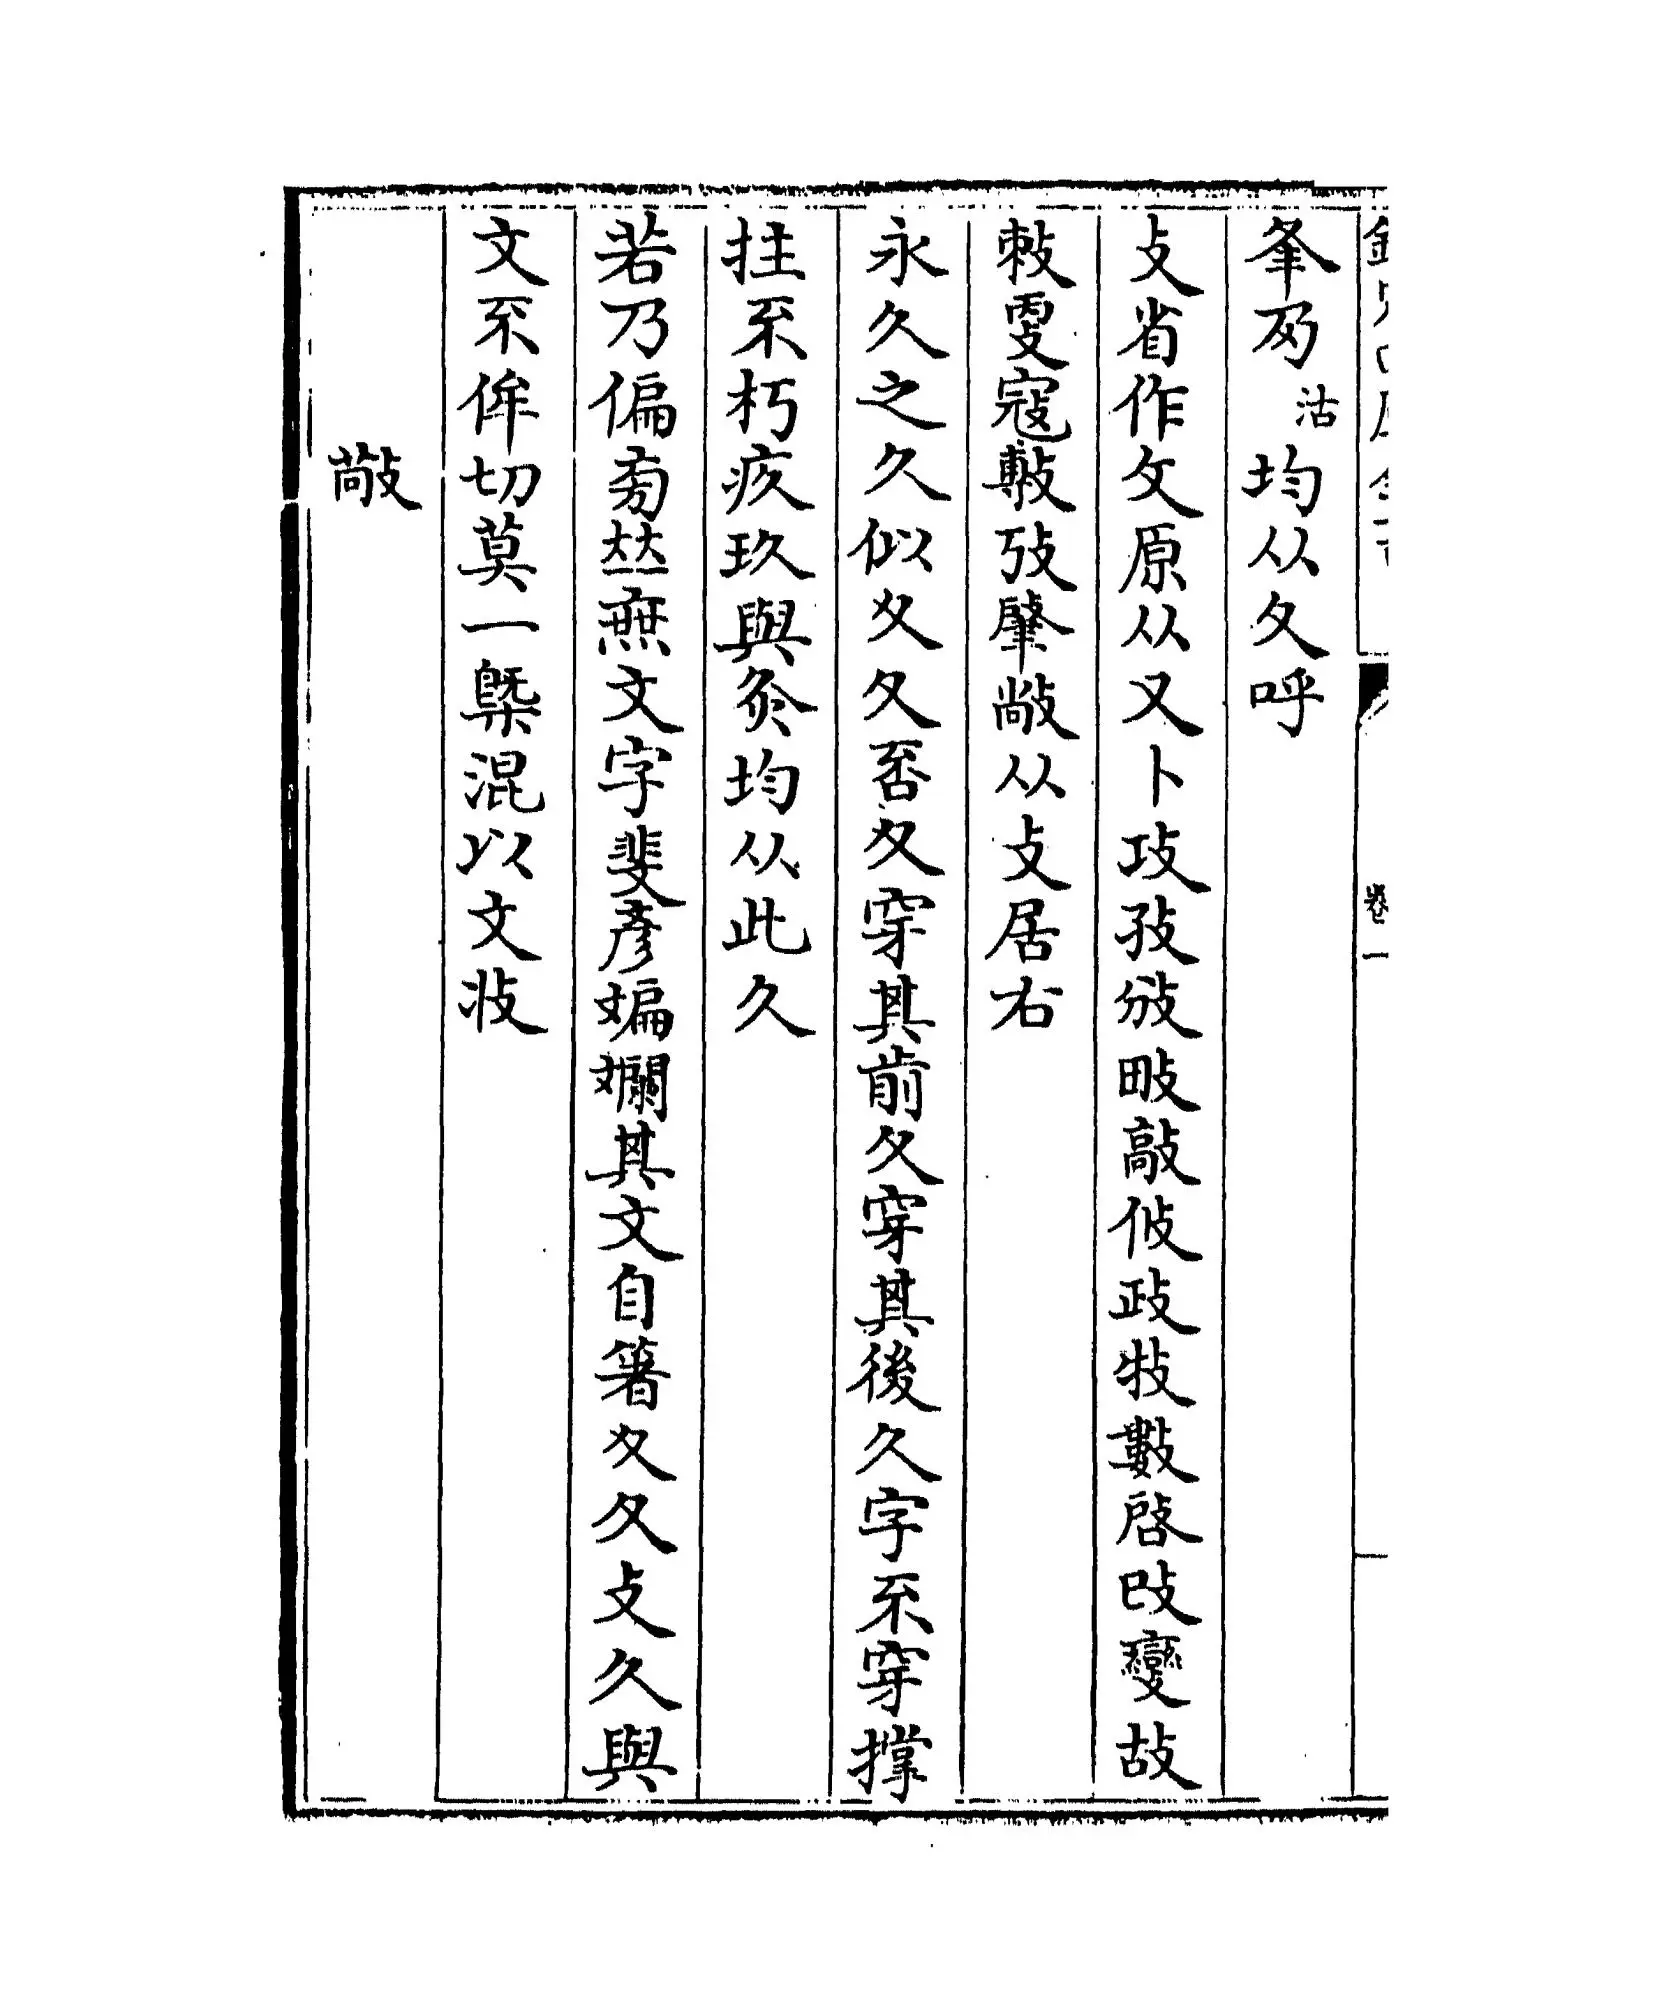 夆夃沽均从夂呼
攴省作攵原从又卜攻孜攽畋敲攸政牧數啓改變故
敕㪅寇斀㢮肇敞从攴居右
永久之久似夊夂否夊穿其前夂穿其後久字不穿撐
拄不朽疚玖與灸均从此久
若乃偏旁竝無文字斐彥斒斕其文自箸夊夂攴久與
文不侔切莫一槩混以文妝
敵
卷一